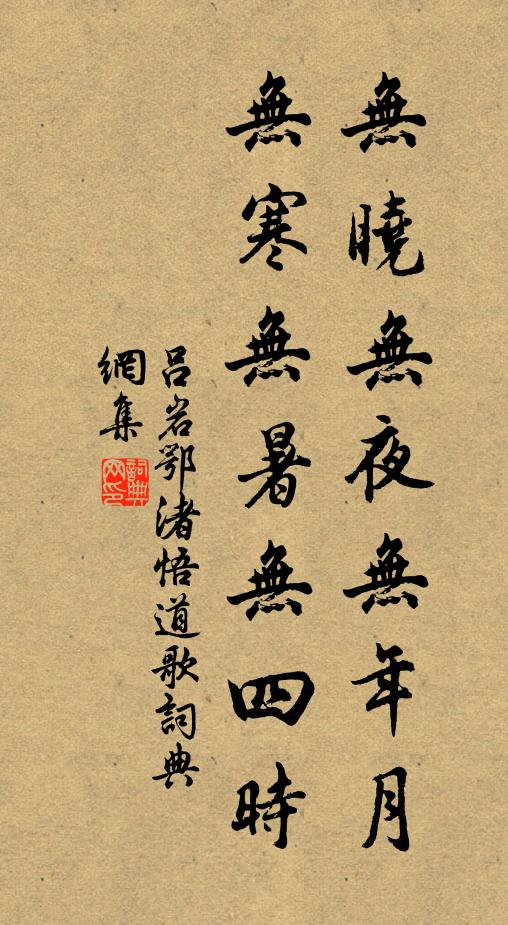 無曉無夜無年月
無寒無暑無四時
呂岩鄂渚悟道歌詞典
網集
詞典網印